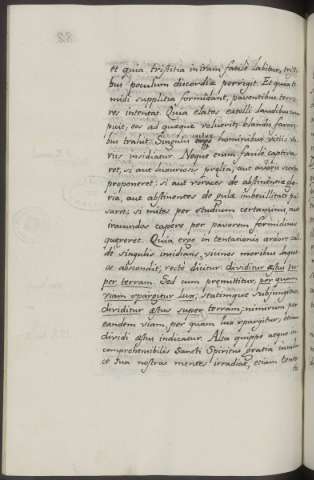 et quia tristitia in iram facile labitur, tristi-
bus poculum discordiæ porrigit. Et quia ti-
midi supplitia formidant, paventibus terro-
res intentat. Quia elatos extolli laudibus cons-
picit, eos ad quæque voluerit, blandis favori-
bus trahit. Singulis igitur hominibus vitiis
insidiatur. Neque enim facile captiva-
ret, si aut luxuriosis præmia, aut avaris scorta
proponeret; si aut voraces de abstinentiæ glo-
ria, aut abstinentes de gulæ imbecillitate pul-
saret; si mites per studium certaminis, aut
iracundos capere per pavorem formidinis
quæreret. Quia ergo in tentationis ardore cali-
de singulis insidians, vicines moribus laque-
os abscondit, recte dicitur: dividitur æstus su-
per terram. Sed cum præmittitur, per quam
viam spargitur lux; statimque subiungitur,
dividitur æstus super terram; nimirum per
eandem viam, per quam lux spargitur, etiam
dividi æstus indicatur. Alta quippe atque in-
comprehensibilis Sancti Spiritus gratia cum lu-
ce sua nostras mentes irradiat, etiam tenta-